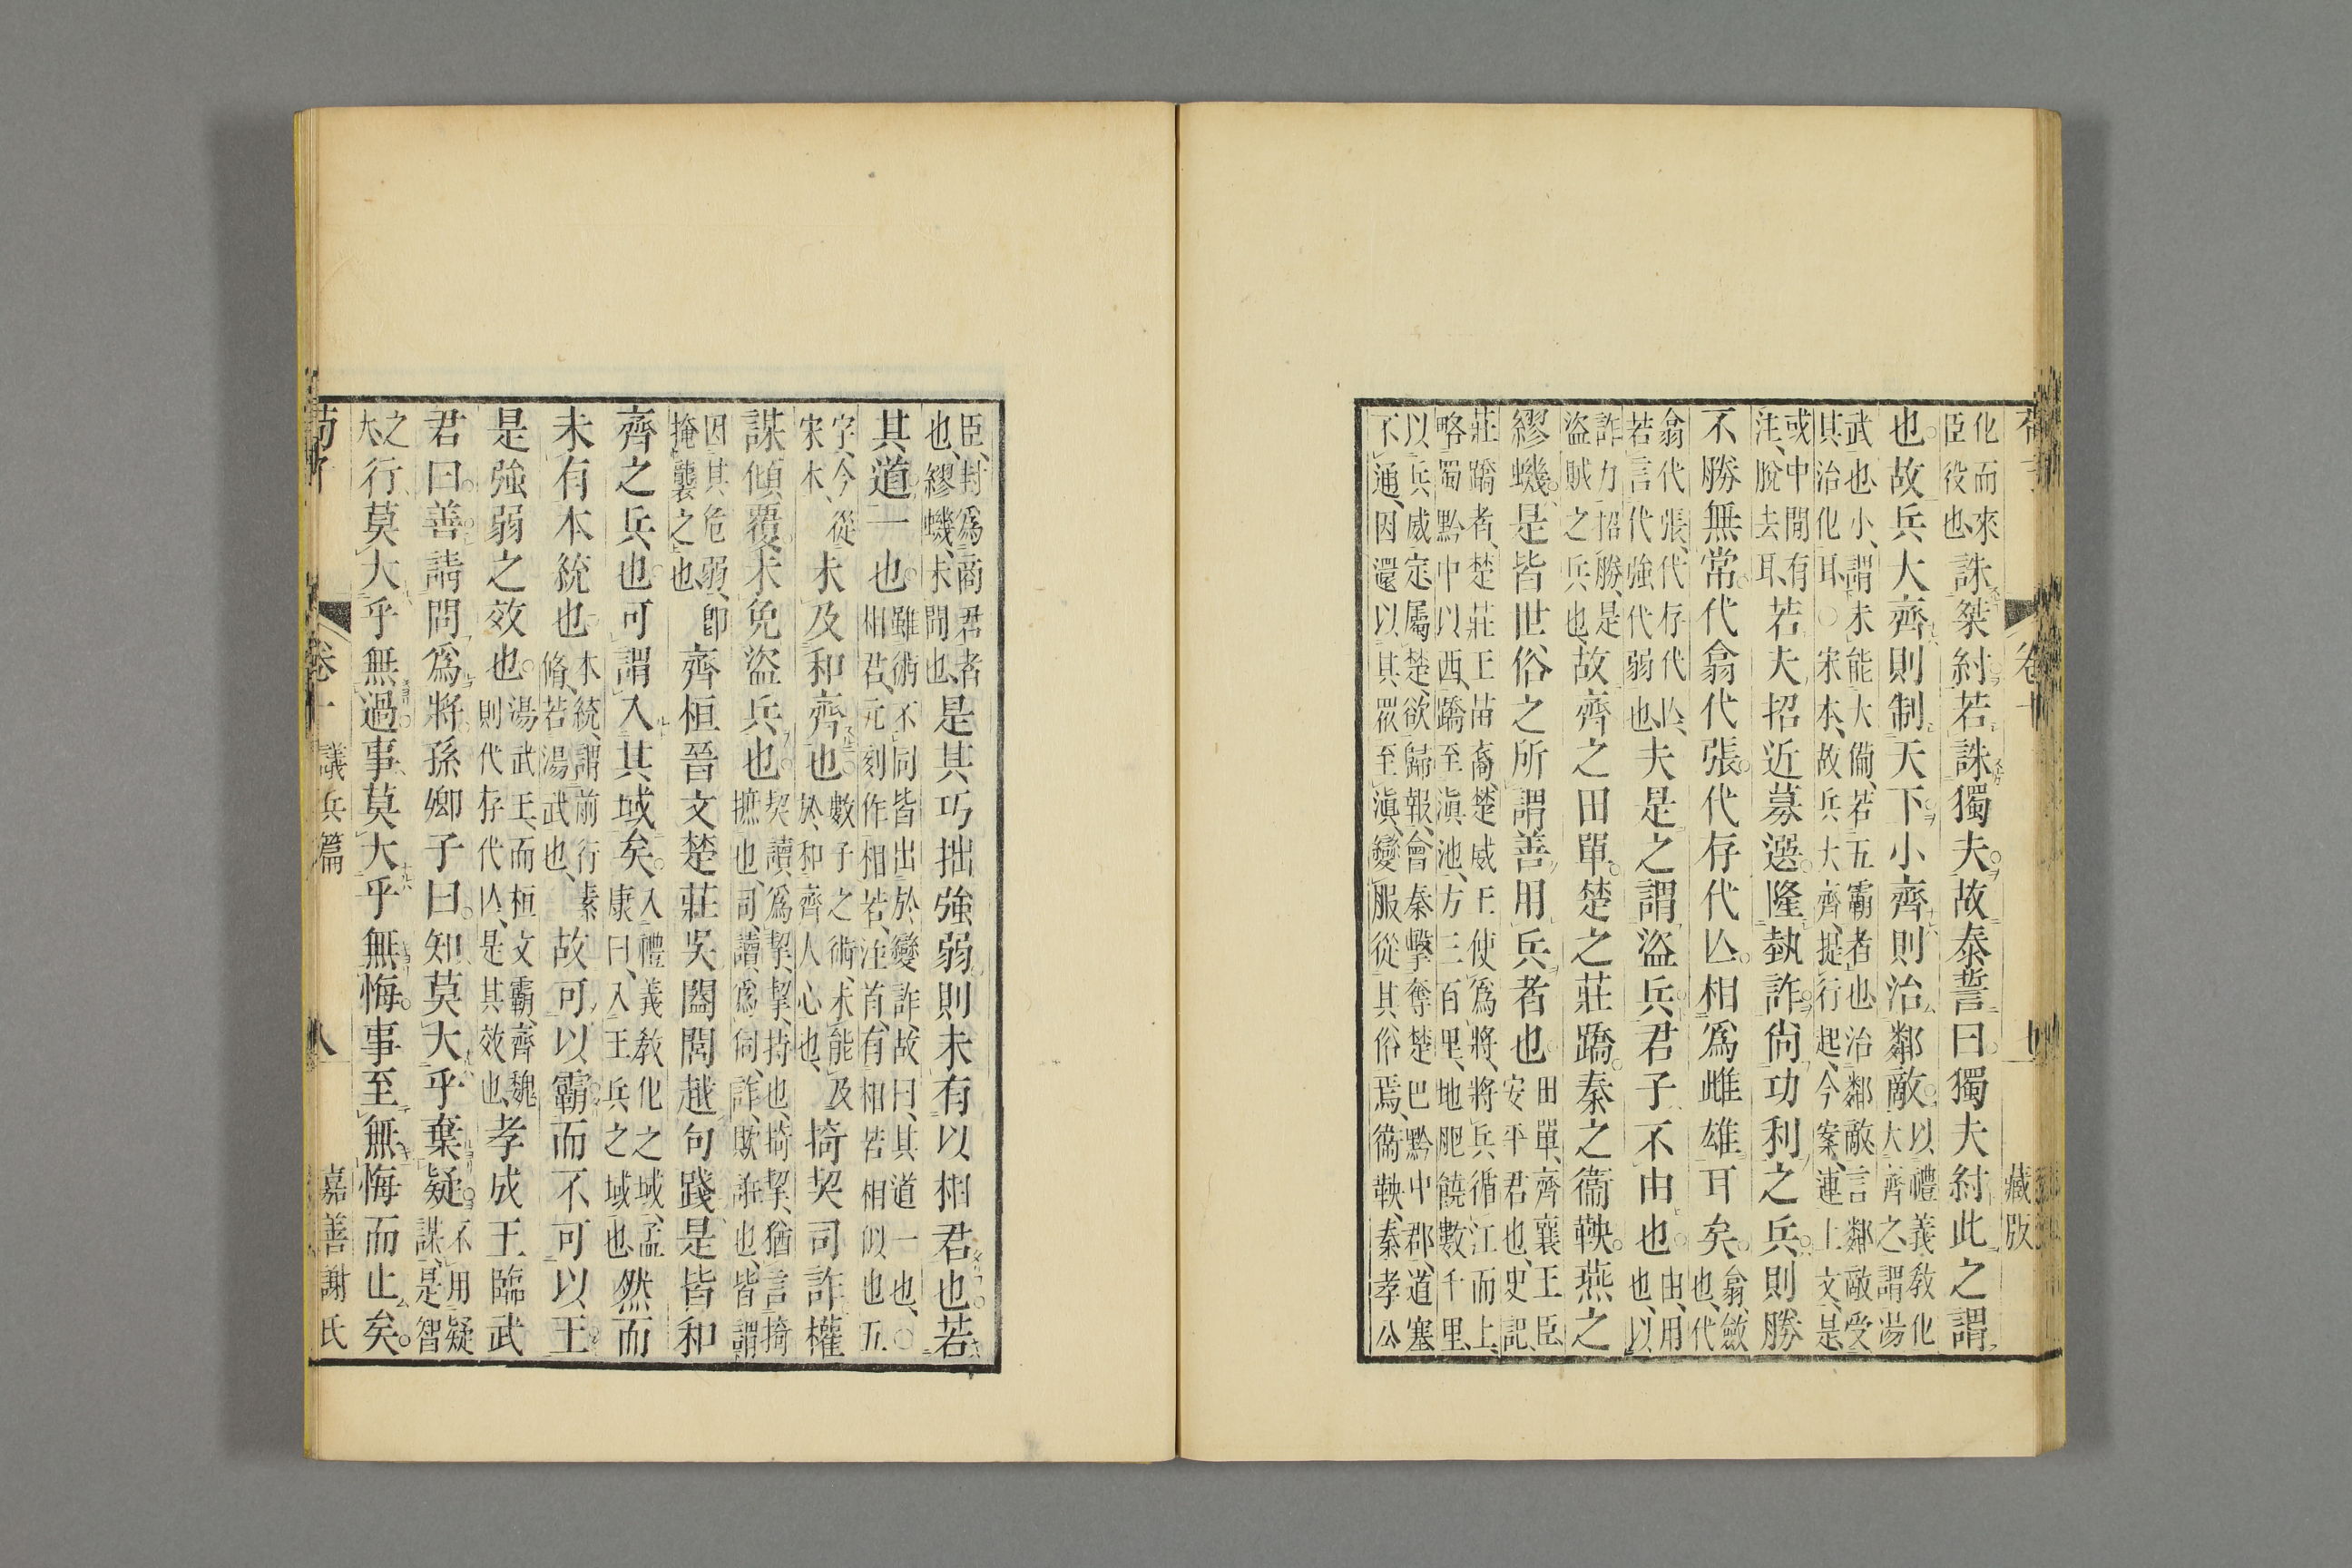 卷十 藏版
化而來臣役也誅桀紂若誅獨夫故泰誓曰獨夫紂此之謂
也故兵大齊則制天下小齊則治鄰敵以禮義教化大齊之謂湯
武也小謂未能大備若五霸者也治鄰敵言鄰敵受其治化耳○宋本故兵大齊提行起今案連上文是
或中閒有注脫去耳若夫招近募選隆埶詐尙功利之兵則勝
不勝無常代翕代張代存代亾相爲雌雄耳矣翕斂也代
翕代張代存代亾若言代強代弱也夫是之謂盜兵君子不由也由用也以
詐力招勝是盜賊之兵也故齊之田單楚之莊蹻秦之衞鞅燕之
繆蟣是皆世俗之所謂善用兵者也田單齊襄王臣安平君也史記
莊蹻者楚莊王苗裔楚威王使爲將將兵循江而上略蜀黔中以西蹻至滇池方三百里地肥饒數千里
以兵威定屬楚欲歸報會秦擊奪楚巴黔中郡道塞不通因還以其眾至滇變服從其俗焉衞鞅秦孝公
臣封爲商君者也繆蟣未聞也是其巧拙強弱則未有以相君也若
其道一也雖術不同皆出於變詐故曰其道一也○相君元刻作相若注首有相若相似也五
字今從宋本未及和齊也數子之術未能及於和齊人心也掎契司詐權
謀傾覆未免盜兵也契讀爲挈挈持也掎挈猶言掎摭也司讀爲伺詐欺誑也皆謂
因其危弱卽掩襲之也齊桓晉文楚莊吳闔閭越句踐是皆和
齊之兵也可謂入其域矣入禮義教化之域孟康曰入王兵之域也然而
未有本統也本統謂前行素脩若湯武也故可以霸而不可以王
是強弱之效也湯武王而桓文霸齊魏則代存代亾是其效也孝成王臨武
君曰善請問爲將孫卿子曰知莫大乎棄疑不用疑謀是智
之大行莫大乎無過事莫大乎無悔事至無悔而止矣
卷十 議兵篇 八 嘉善謝氏